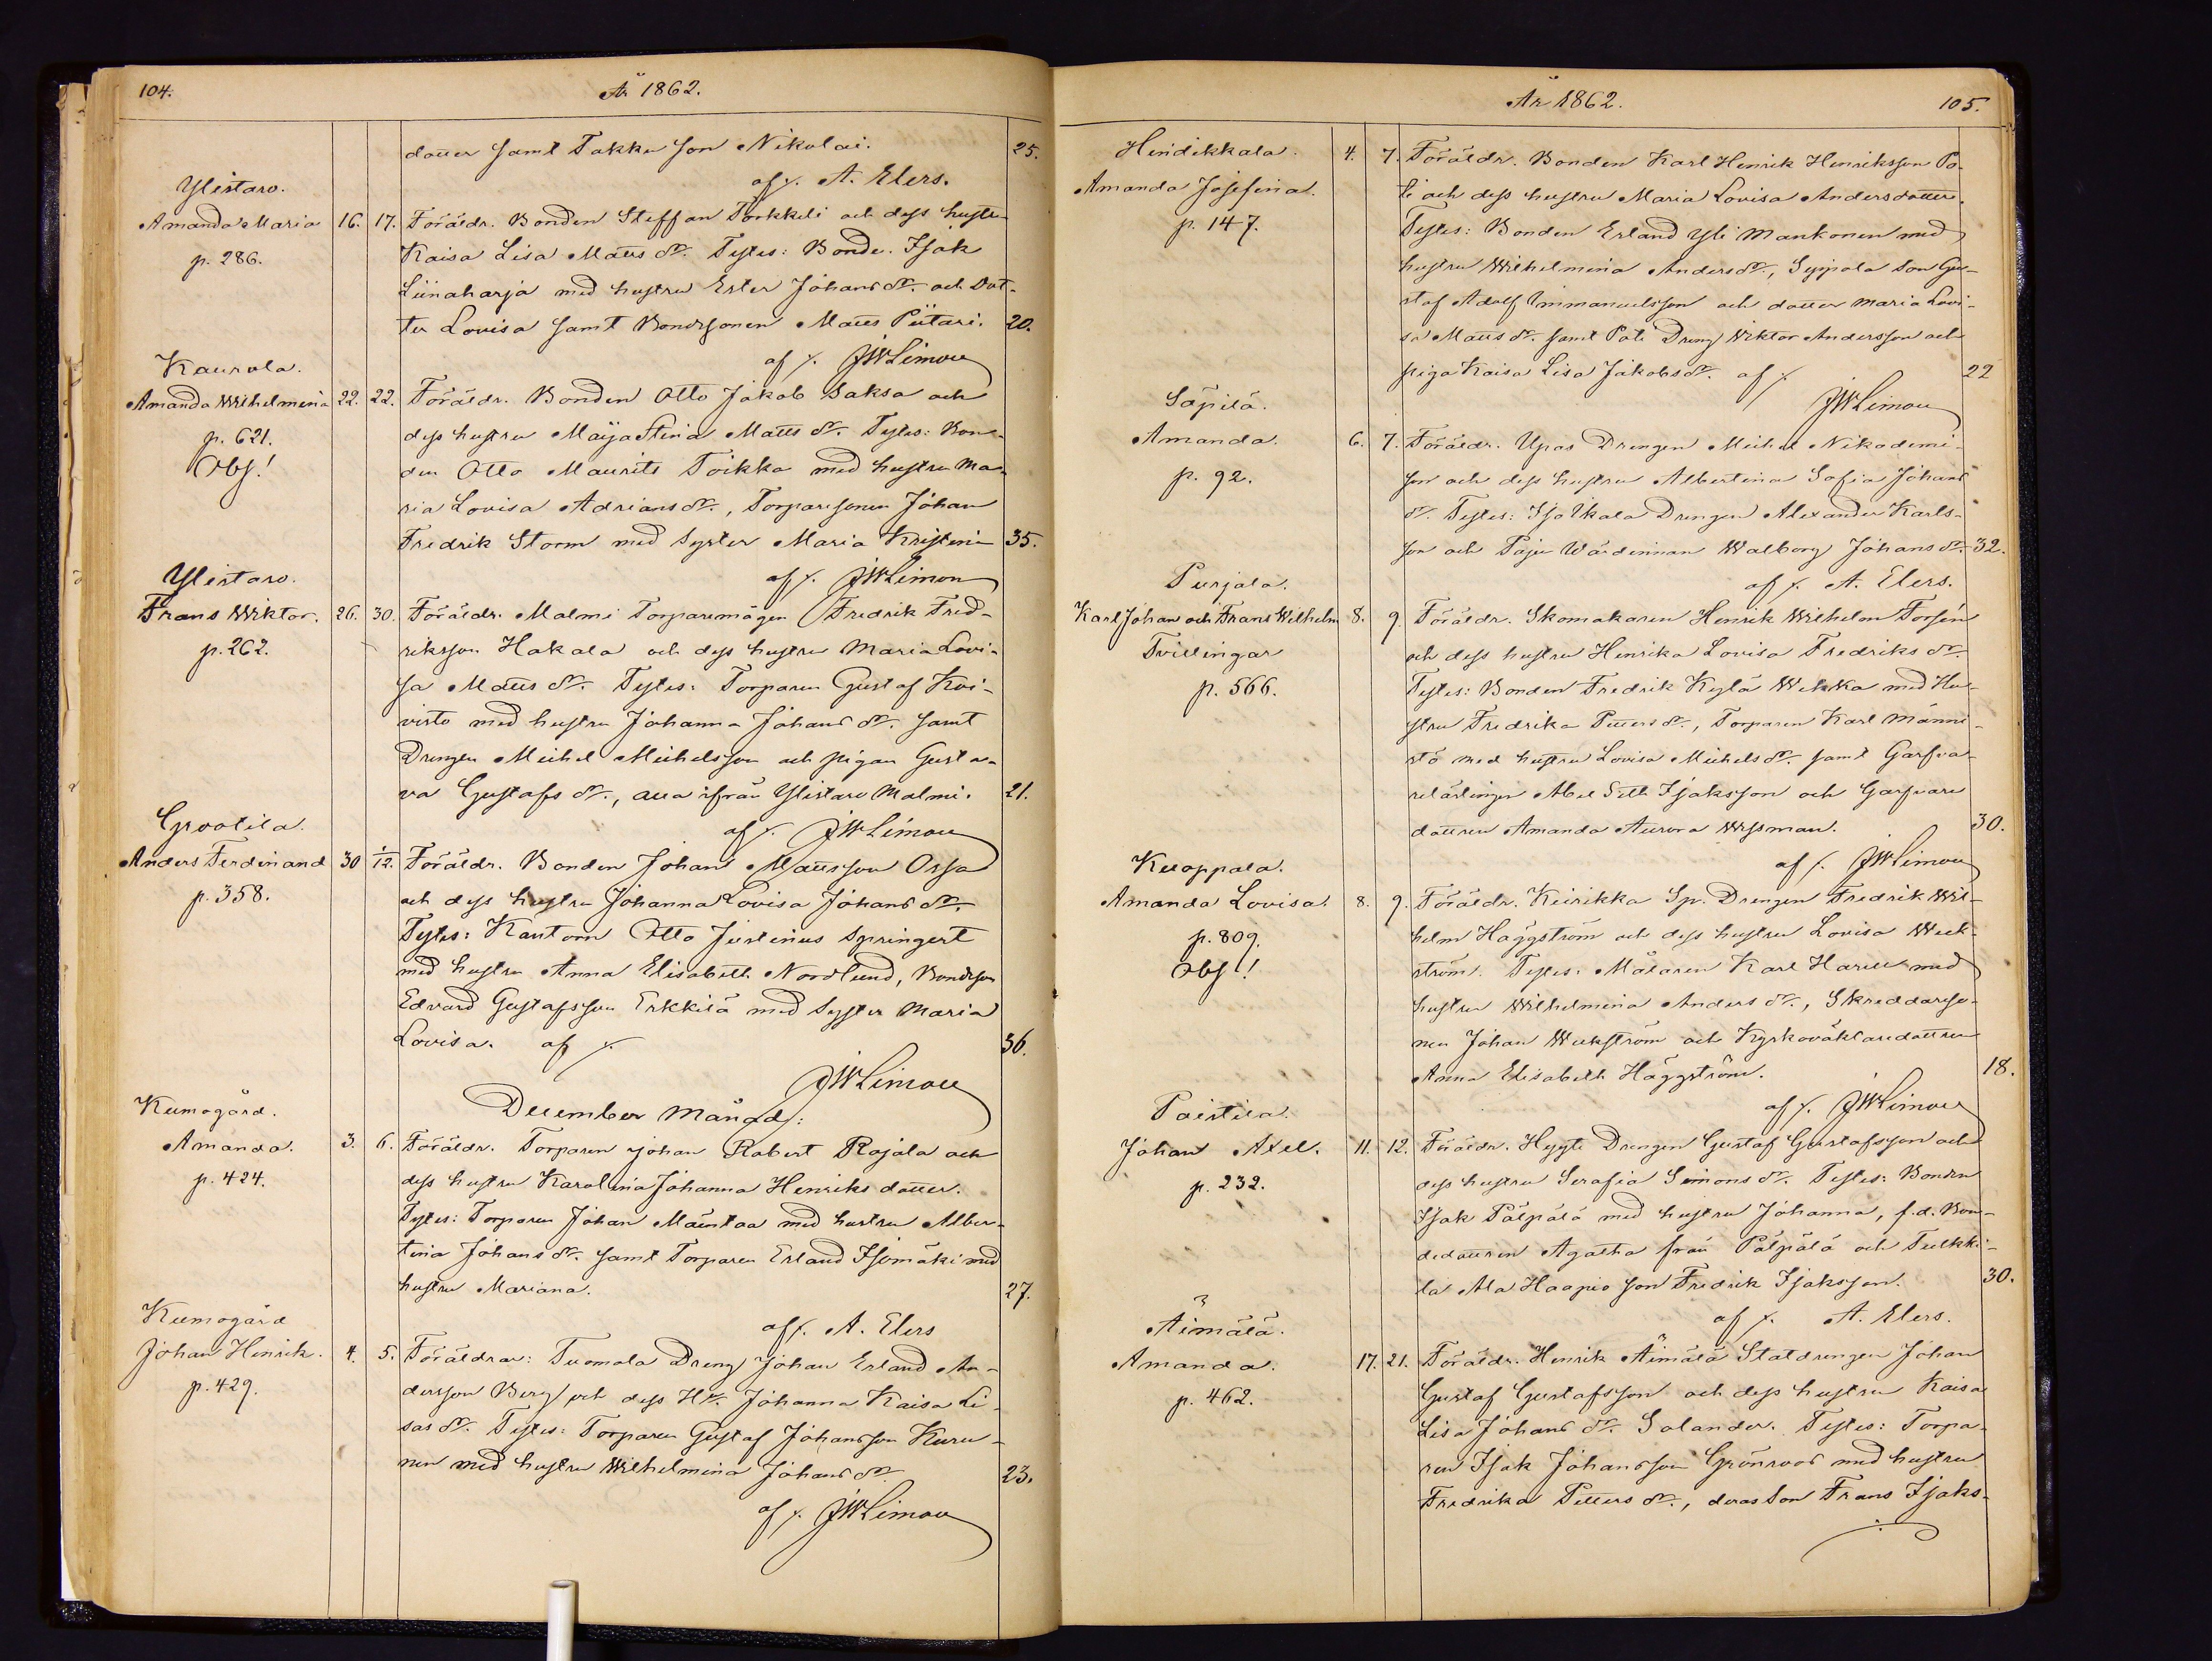 104.
År 1862.
dotter samt Takku son Nikolai. 25.
af /. A. Elers.
Ylistaro.
Amanda Maria 16. 17. Föräldr. Bonden Steffan Torkkeli och dess hustru
p. 286. Kaisa Lisa Matts dr. Testes: Bonde. Isak
Liinaharja med hustru Ester Johans dr. och Dot-
ter Lovisa samt Bondsonen Matts Piitari. 20.
af /. JWLimon
Kaurola.
Amanda Wilhelmina 22. 22. Föräldr. Bonden Otto Jakob Saksa och
p. 621. dess hustru Maija Stina Matts dr. Testes: Bon-
Obs! den Otto Maurits Toikka med hustru Ma-
ria Lovisa Adrians dr., Torparesonen Johan
Fredrik Storm med Syster Maria Kristina 35.
af /. JWLimon
Ylistaro.
Frans Wiktor. 26. 30. Föräldr. Malmi Torparemågen Fredrik Fred-
p. 262. riksson Hakala och dess hustru Maria Lovi-
sa Matts dr. Testes: Torparen Gustaf Koi-
visto med hustru Johanna Johans dr. samt
Drengen Michel Michelsson och pigan Gusta-
va Gustafs dr., alla ifrån Ylistaro Malmi. 21.
af /. JWLimon
Grootila.
Anders Ferdinand 30 1/12. Föräldr. Bonden Johan Mattsson Ossa
p. 358. och dess hustru Johanna Lovisa Johans dr.
Testes: Kantorn Otto Justinus Springert
med hustru Anna Elisabeth Nordlund, Bondeson
Edvard Gustafsson Erkkilä med Syster Maria
Lovisa. af /. 36.
JWLimon
December Månad:
Kumogård.
Amanda. 3. 6. Föräldr. Torparen Johan Robert Rajala och
p. 424. dess hustru Karolina Johanna Henriks dotter.
Testes: Torparen Johan Mäntaa med hustru Alber-
tina Johans dr. samt Torparen Erland Isomäki med
hustru Mariana. 27.
af /. A. Elers
Kumogård
Johan Henrik. 4. 5. Föräldrar: Tuomola Dreng Johan Erland An-
p. 429. dersson Berg och dess Hu. Johanna Kaisa Li-
sas dr. Testes: Torparen Gustaf Johansson Kuru-
nen med hustru Wilhelmina Johans dr. 23.
af /. JWLimon
År 1862.
105.
Hendikkala. 4. 7. Föräldr. Bonden Karl Henrik Henriksson Po-
Amanda Josefina. ti och dess hustru Maria Lovisa Andersdotter.
p. 147. Testes: Bonden Erland Yli Mankonen med
hustru Wilhelmina Anders dr., Seppola Son Gu-
staf Adolf Immanuelsson och dotter Maria Lovi-
sa Matts dr. samt Poti Dreng Wiktor Andersson och
piga Kaisa Lisa Jakobs dr. af /. 22
JWLimon
Säpilä.
Amanda. 6. 7. Föräldr. Upas Drengen Michel Nikodemi-
p. 92. son och dess hustru Albertina Sofia Johans
dr. Testes: Iso Ukala Drengen Alexander Karls-
son och Paju Wärdinnan Walborg Johans dr. 32.
af /. A. Elers.
Purjala.
Karl Johan och Frans Wilhelm 8. 9. Föräldr. Skomakaren Henrik Wilhelm Forsén
Tvillingar och dess hustru Henrika Lovisa Fredriks dr.
p. 566. Testes: Bonden Fredrik Kylä Wekka med Hu-
stru Fredrika Petters dr., Torparen Karl Männi-
stö med hustru Lovisa Michels dr. samt Garfva-
relärlingen Abel Seth Isaksson och Garfvare
dottren Amanda Aurora Wissman. 30.
af /. JWLimon
Kuoppala.
Amanda Lovisa. 8. 9. Föräldr. Keirikka Sp. Drengen Fredrik Wil-
p. 809. helm Häggström och dess hustru Lovisa Weck-
Obs! ström. Testes: Målaren Karl Harell med
hustru Wilhelmina Anders dr., Skreddareso-
nen Johan Weckström och Kyrkoväktaredottren
Anna Elisabeth Häggström. 18.
af /. JWLimon
Paistila.
Johan Axel. 11. 12. Föräldr. Hyyti Drengen Gustaf Gustafsson och
p. 232. dess hustru Serafia Simons dr. Testes: Bonden
Isak Pälpälä med hustru Johanna, f.d. Bon-
dedottren Agatha från Pälpälä och Tulkki-
la Ala Haapio son Fredrik Isaksson. 30.
af /. A. Elers.
Äimälä.
Amanda. 17. 21. Föräldr. Henrik Äimälä Statdrengen Johan
p. 462. Gustaf Gustafsson och dess hustru Kaisa
Lisa Johans dr. Solander. Testes: Torpa-
ren Isak Johansson Grönroos med hustru
Fredrika Petters dr., deras Son Frans Isaks-